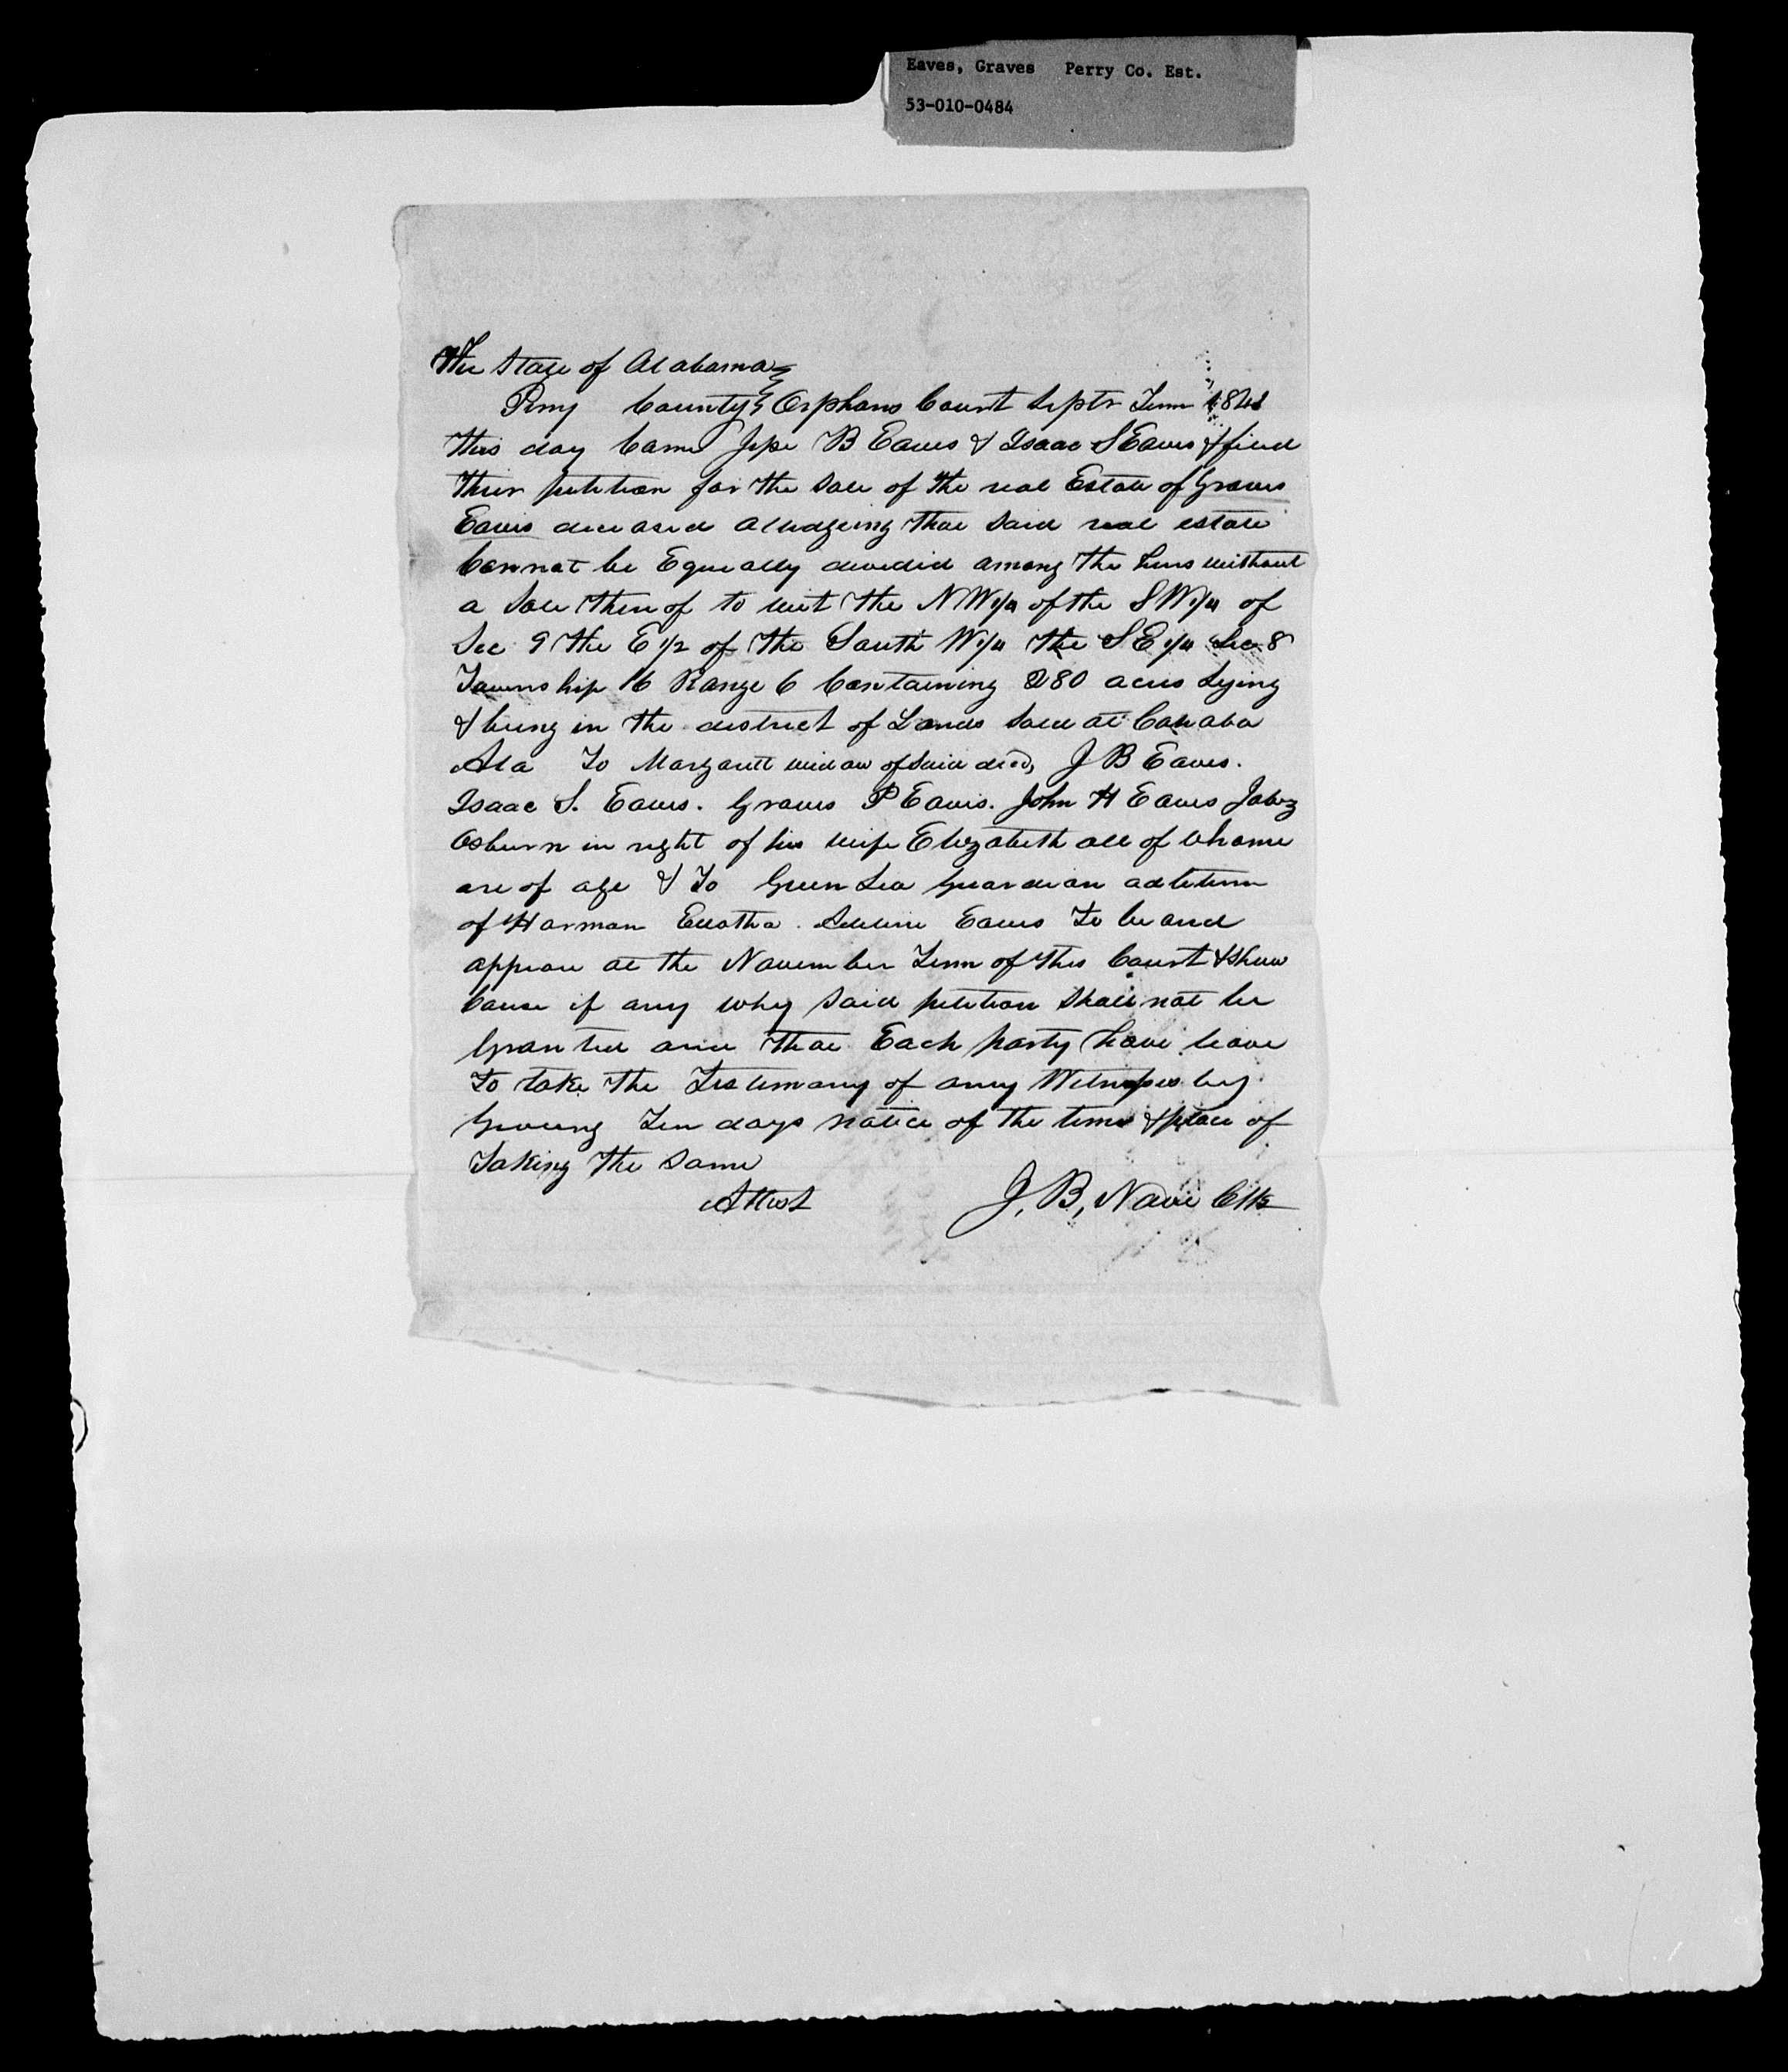 Eaves, Graves Perry Co. Est.
53-010-0484
The State of Alabama
Perry County Orphans Court Septr Term
this day Came Jesse B Eaves & Isaac S Eaves & filed
their petition for the Sale of the real Estate of Graves
Eaves deceased alledgeing that Said real estate
Cannot be Equeally devided among the heirs without
a Sale there of to wit the N W 1/4 of the S W 1/4 of
Sec 9 the E 1/2 of the South W 1/4 the S E 1/4 Sec 8
Township 16 Range 6 Containing 280 acres Lying
& being in the district of Lands Sold at Cahaba
Ala To Margarett widow of Said decd, J B Eaves.
Isaac S. Eaves. Graves P Eaves. John H Eaves Jabez
Osburn in right of his wife Elizabeth all of whome
are of age & To Green Lea Guardian ad litem
of Harman Eaves To be and
appear at the November Term of this Court & Shew
Cause if any why Said petition Shall not be
Granted and that Each party have leave
To take the Testimony of any Witnesses by
Giveing Ten days notice of the time & place of
Taking the Same
Attest J, B, Nave Clk